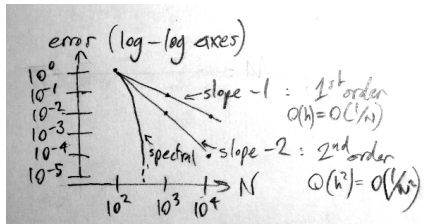 error (log-log axes)
10⁰
10⁻¹
10⁻²
10⁻³
10⁻⁴
10⁻⁵
slope -1 : 1st order
O(h) = O(1/N)
spectral
slope -2 : 2nd order
O(h²) = O(1/N²)
N
10² 10³ 10⁴